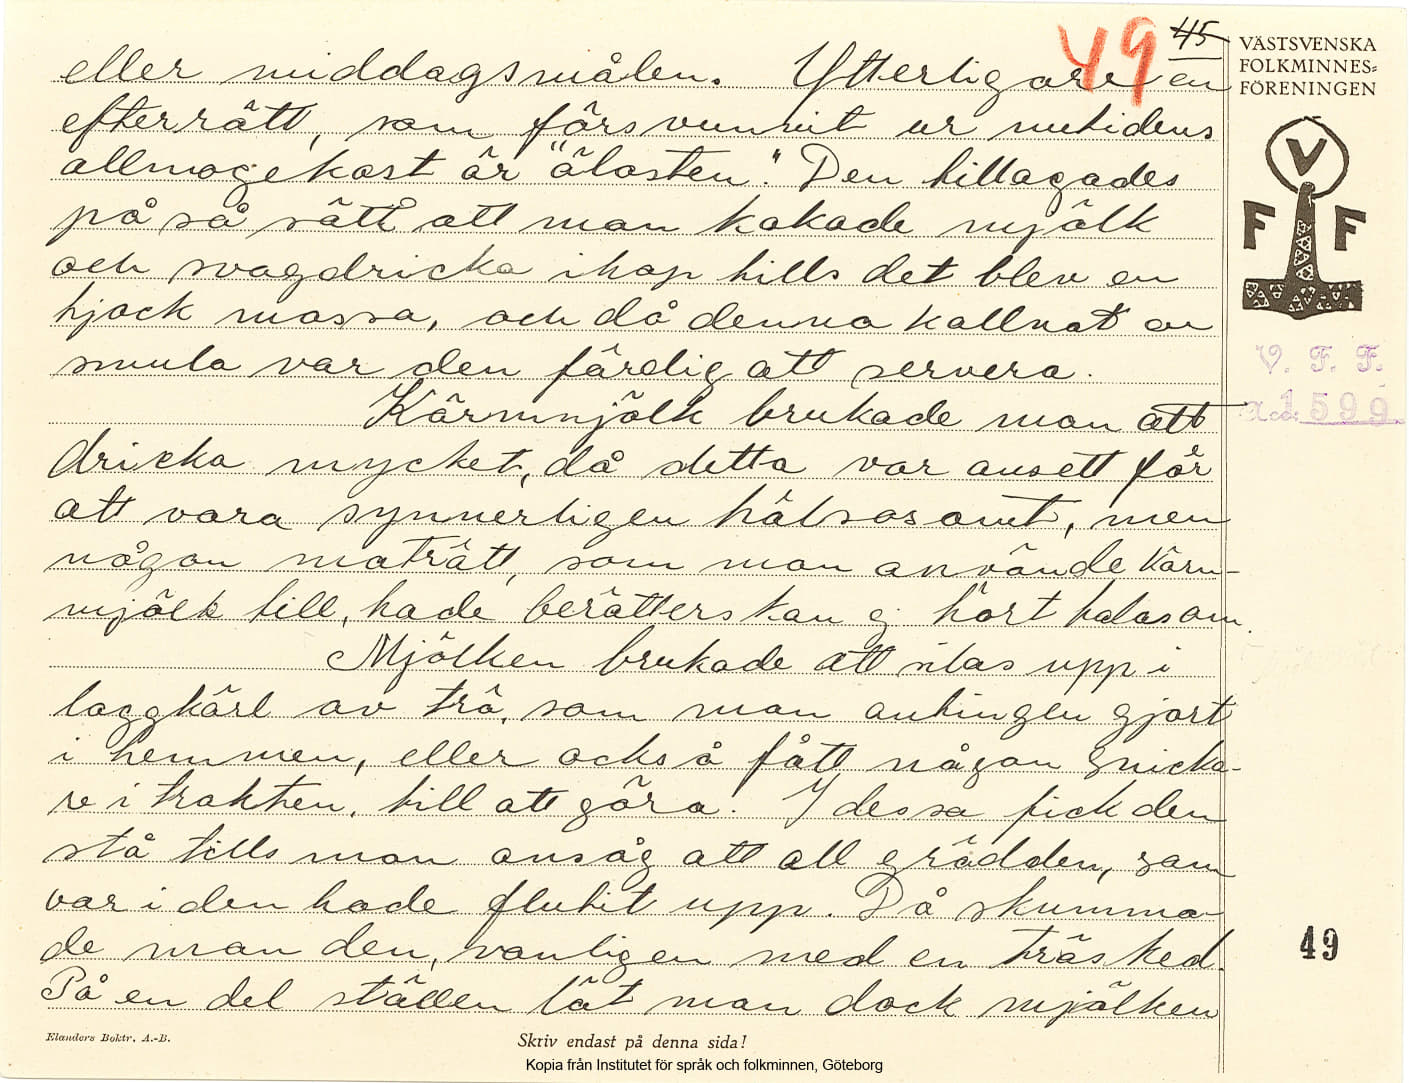 49 45
eller middagsmålen. Ytterligare en
efterrätt, som försvunnit ur nutidens
allmogekost är "ålosten". Den tillagades
på så sätt att man kokade mjölk
och svagdricka ihop tills det blev en
tjock massa, och då denna kallnat en
smula var den färdig att servera.
Kärnmjölk brukade man att
dricka mycket, då detta var ansett för
att vara synnerligen hälsosamt, men
någon maträtt, som man använde kärn-
mjölk till, hade berätterskan ej hört talas om.
Mjölken brukade att silas upp i
laggkärl av trä, som man antingen gjort
i hemmen, eller också fått någon snicka-
re i trakten, till att göra. I dessa fick den
stå tills man ansåg att all grädden, som
var i den hade flutit upp. Då skumma-
de man den, vanligen med en träsked.
På en del ställen lät man dock mjölken
VÄSTSVENSKA
FOLKMINNES-
FÖRENINGEN
V
F F
V. F. F.
1599
49
Elanders Boktr. A.-B.
Skriv endast på denna sida!
Kopia från Institutet för språk och folkminnen, Göteborg